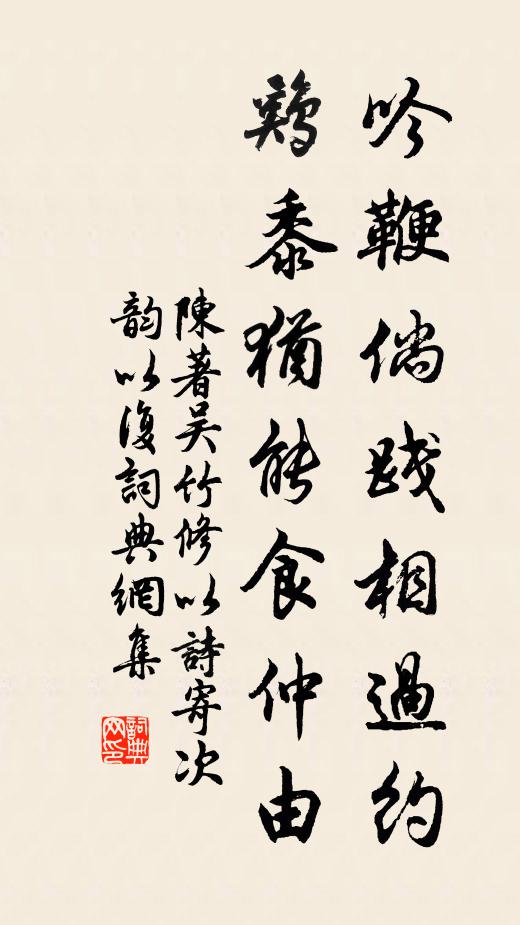 吟鞭倘践相過約
鷄黍猶能食仲由
陳著吴竹修以詩寄次
韵以復詞典網集
詞典网印